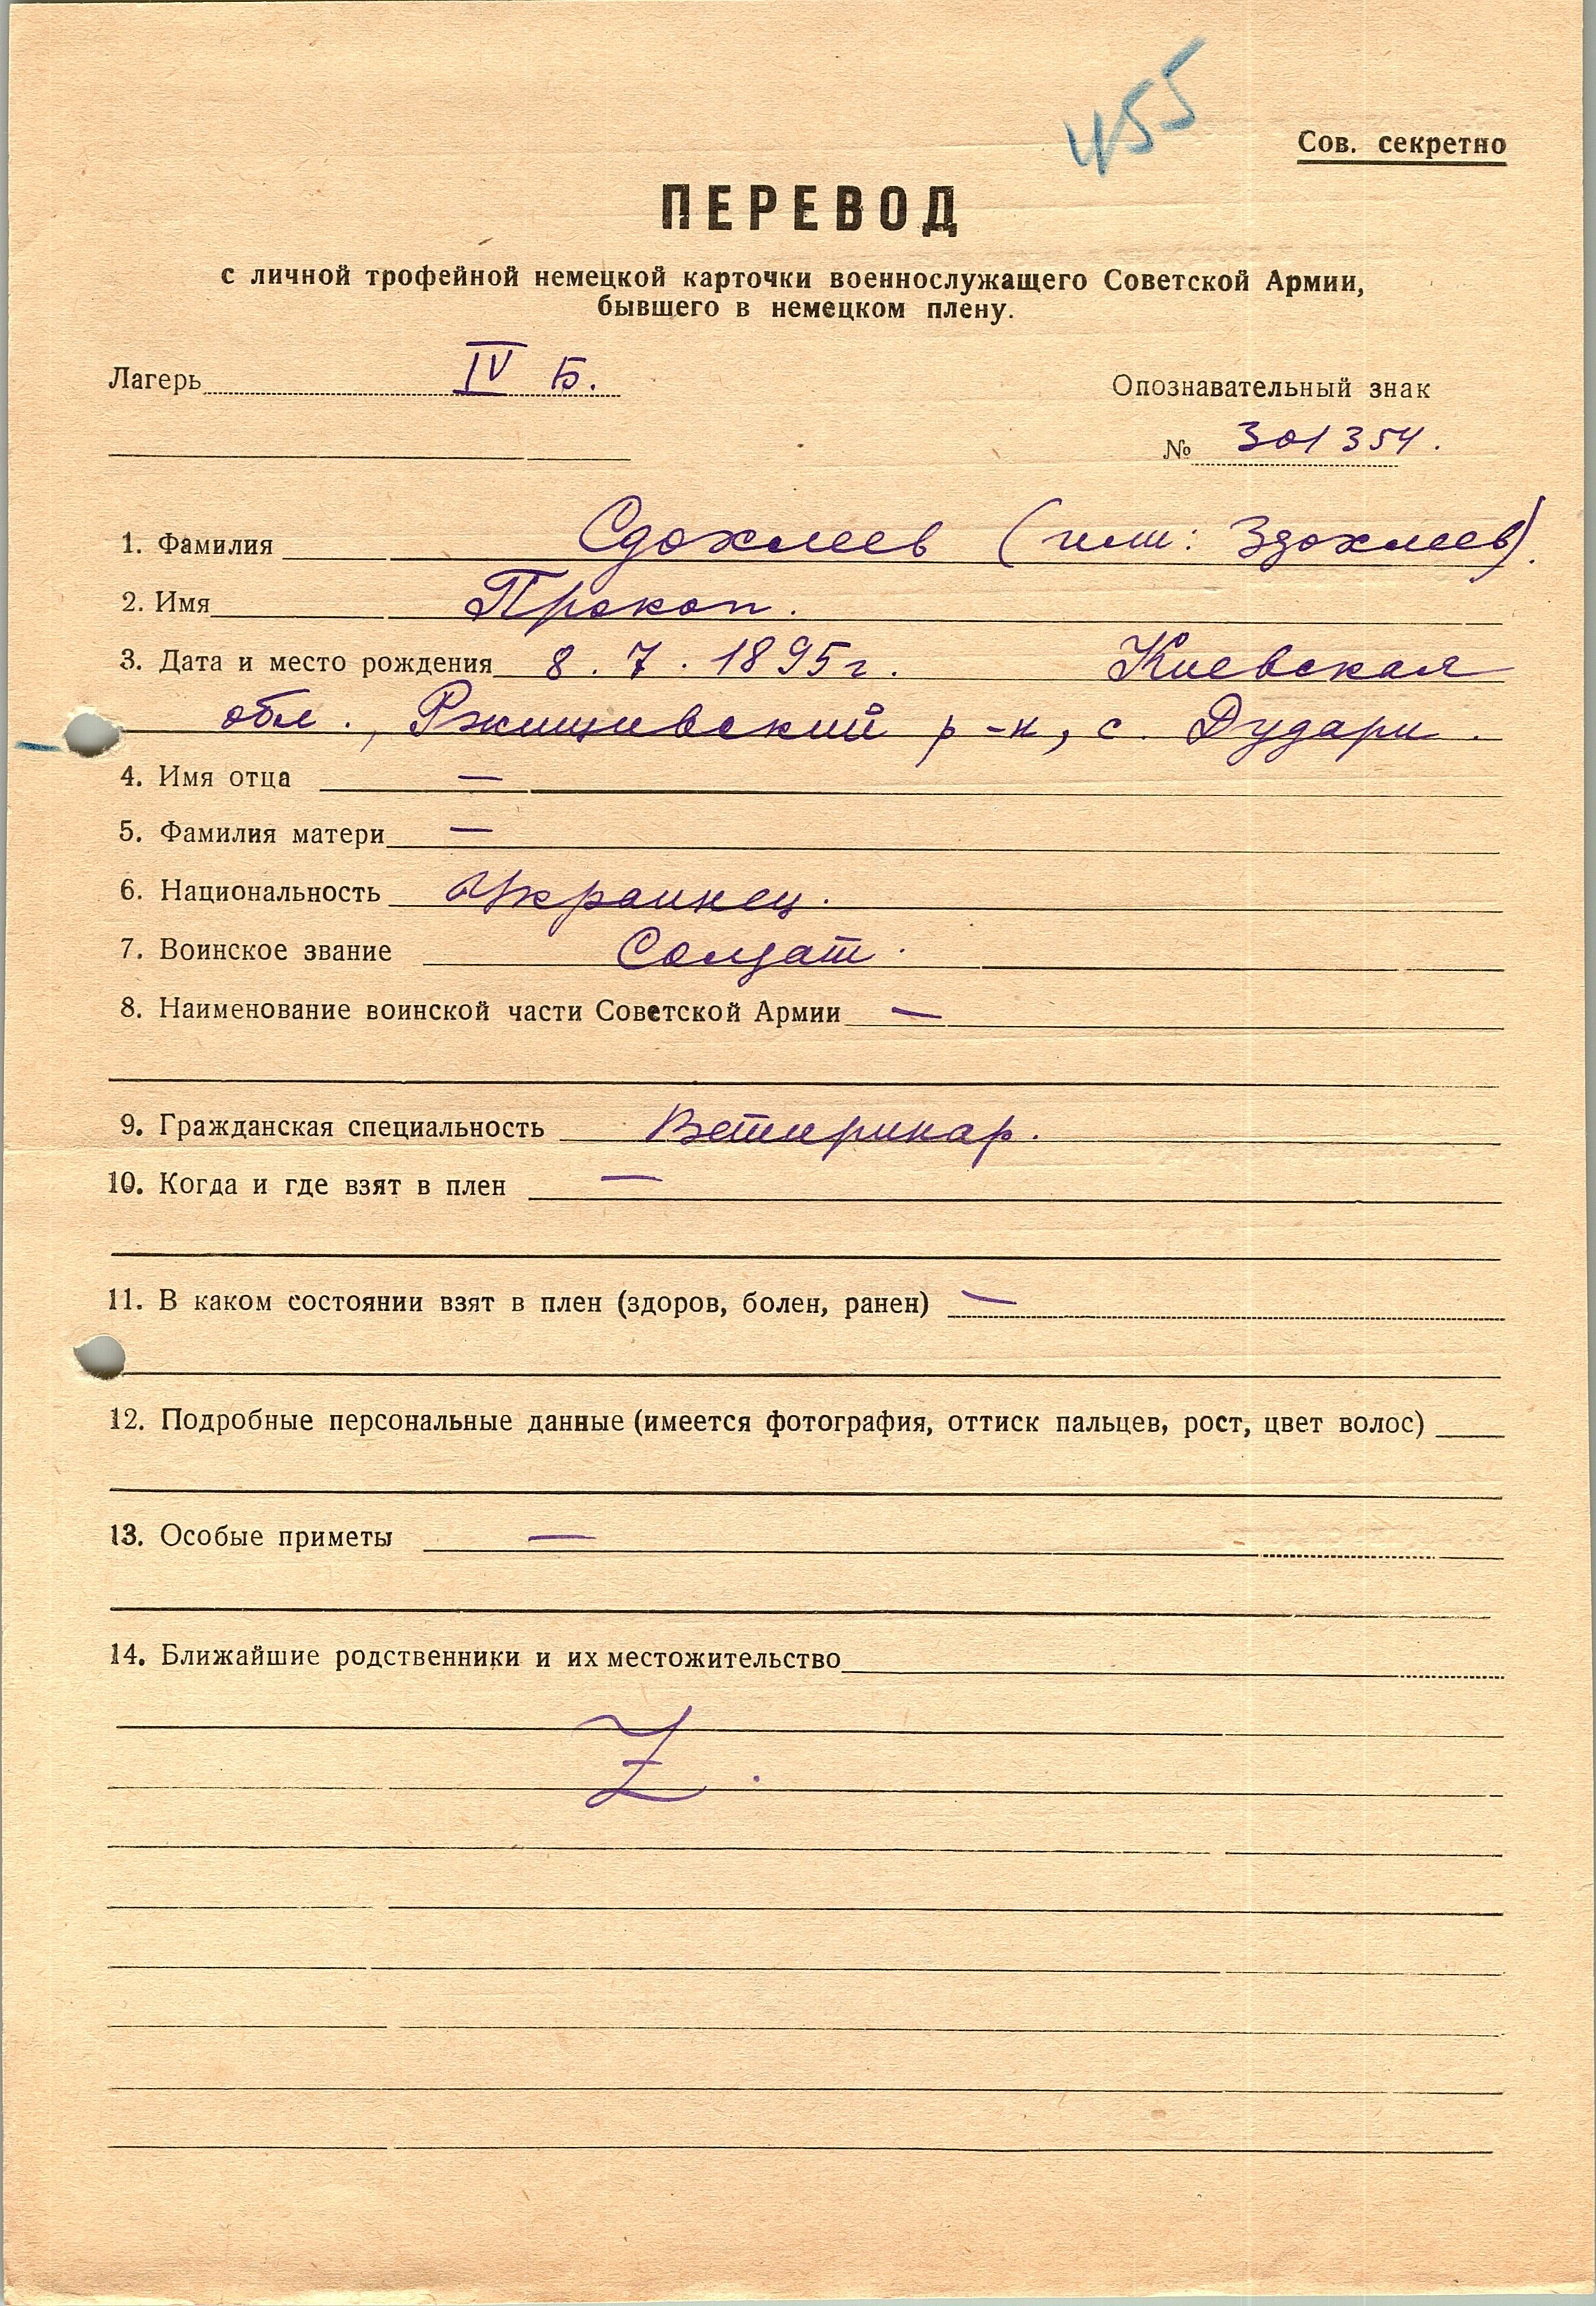 455
Сов. секретно
ПЕРЕВОД
с личной трофейной немецкой карточки военнослужащего Советской Армии,
бывшего в немецком плену.
Лагерь IV Б.
Опознавательный знак
№ 301354.
1. Фамилия Сдохлеев (или: Здохлеев).
2. Имя Прокоп.
3. Дата и место рождения 8.7.1895г. Киевская
обл., Ржищивский р-н, с. Дудари.
4. Имя отца —
5. Фамилия матери —
6. Национальность Украинец.
7. Воинское звание Солдат.
8. Наименование воинской части Советской Армии —
9. Гражданская специальность Ветиринар.
10. Когда и где взят в плен —
11. В каком состоянии взят в плен (здоров, болен, ранен) —
12. Подробные персональные данные (имеется фотография, оттиск пальцев, рост, цвет волос)
13. Особые приметы —
14. Ближайшие родственники и их местожительство
Z.